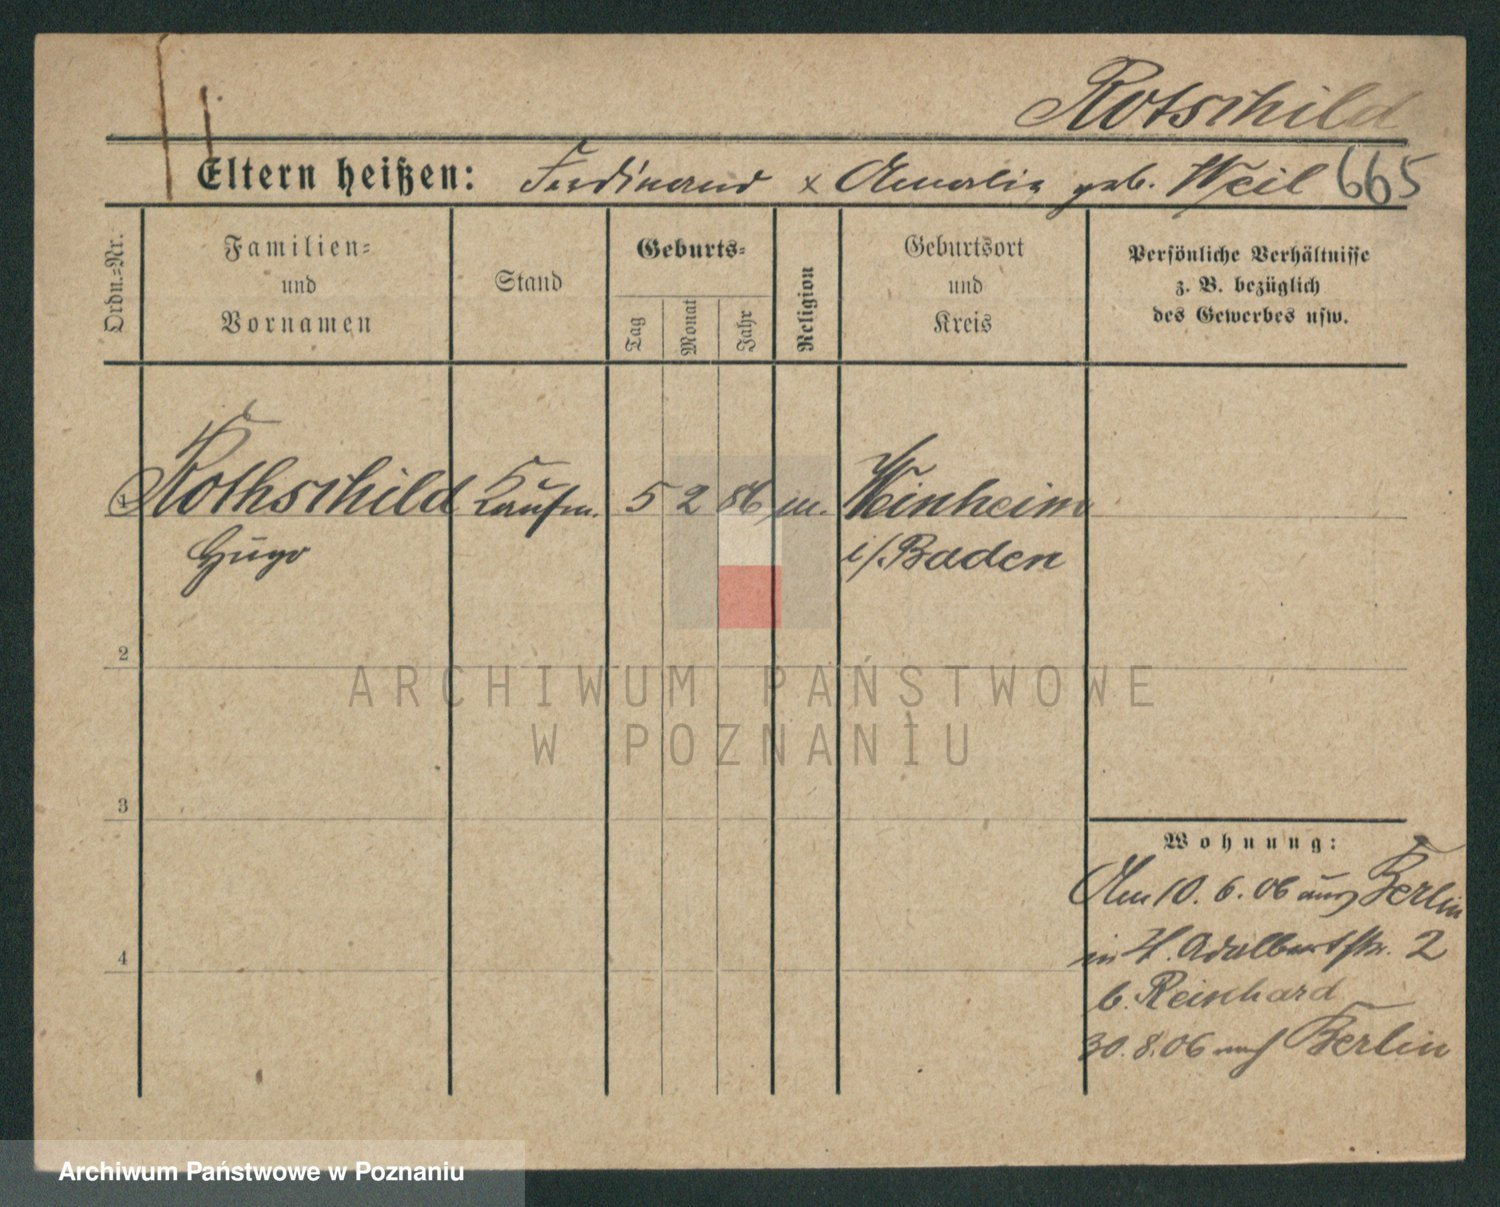 Rotschild
Eltern heißen: Ferdinand x Amalia geb. Weil 665
Ordn.=Nr.
Familien=
und
Vornamen
Stand
Geburts=
Tag
Monat
Jahr
Religion
Geburtsort
und
Kreis
Persönliche Verhältnisse
z. B. bezüglich
des Gewerbes usw.
Rothschild Kaufm. 5 2 86 m. Weinheim
Hugo i/. Baden
2
ARCHIWUM PAŃSTWOWE
W POZNANIU
3
Wohnung:
Am 10. 6. 06 aus Berlin
in Adalbertstr. 2
b. Reinhard
30. 8. 06 nach Berlin
4
Archiwum Państwowe w Poznaniu